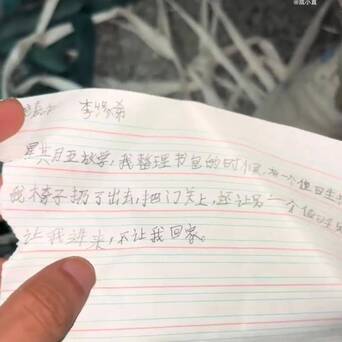 @成小直
李
星其月五放学,我整理书包的时候,有一个值日生
我本子扔了出去,把门关上,还让另一个值日生
让我进来,不让我回家。